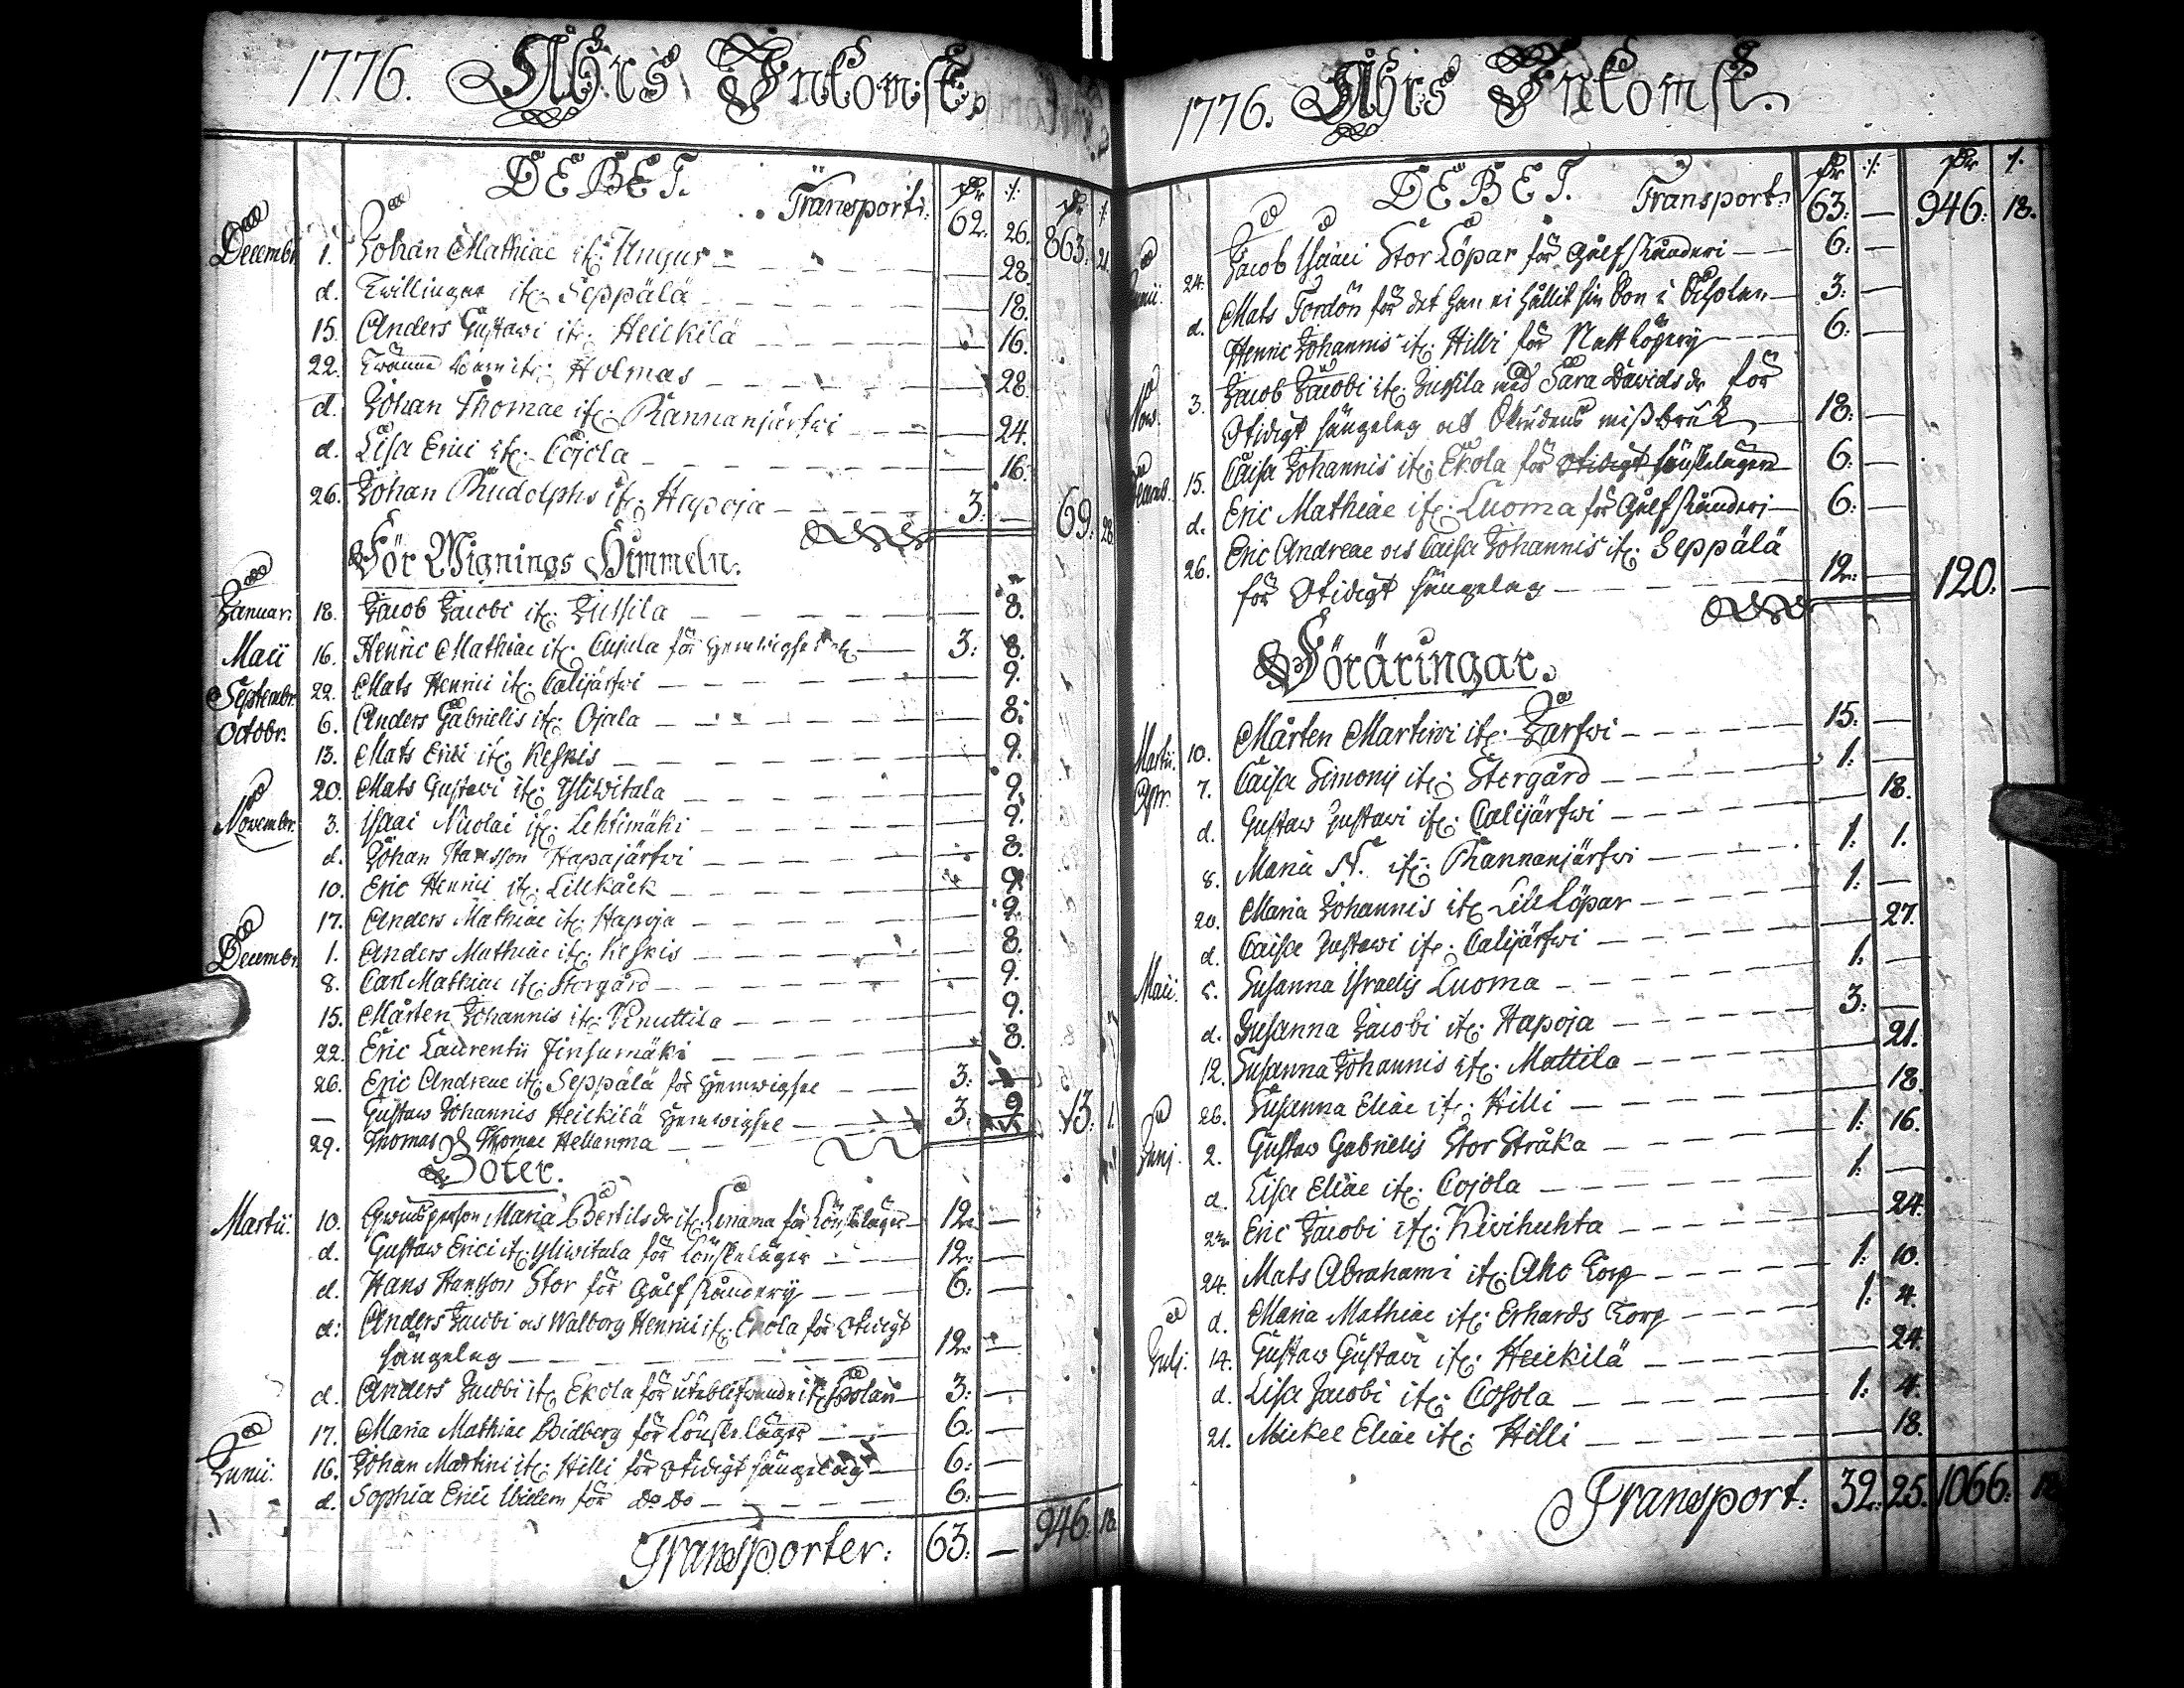 1776. Åhrs Inkomst,
DEBET. Transport: 62. 26. 863. 21.
Decembr. 1. Johan Mathiae it: Ungur — 28.
d. Twillingar it: Seppälä — 18.
15. Anders Gustavi it: Heickilä — 16.
22. barn it: Holmas — 28.
d. Johan Thomae it: Kannanjärfwi — 24.
d. Lisa Erici it: Cojola — 16.
26. Johan Rudolphs it: Hapoja — 3. — 69. 28.
För Wignings Himmeln.
Januar: 18. Jacob Jacobi it: Jussila — 8.
Maii 16. Henric Mathiae it: Cujala för Hemwigsel 3: 8.
Septembr. 22. Mats Henrici it: Calijärfwi — 9.
Octobr. 6. Anders Gabrielis it: Ojala — 8.
13. Mats Erici it: Keskis — 9.
20. Mats Gustavi it: Yliwitala — 9.
Novembr. 3. Isaac Nicolai it: Lehtimäki — 9.
d. Johan Hansson Hapajärfwi — 8.
10. Eric Henrici it: Lillkåck — 9.
17. Anders Mathiae it: Hapoja — 9.
Decembr. 1. Anders Mathiae it: Keskis — 8.
8. Carl Mathiae it: Storgård — 9.
15. Mårten Johannis it: Knuttila — 9.
22. Eric Laurentii Jinsumäki — 8.
26. Eric Andreae it: Seppälä för Hemwigsel — 3: —
— Gustaw Johannis Heickilä Hemwigsel — 3. 9 13. 1.
29. Thomas Thomae Hellanma —
Böter.
Martii. 10. Maria Bertils dr it: Lenama för Lönskeläger — 12. —
d. Gustaw Erici it: Yliwitala för Lönskeläger — 12: —
d. Hans Hansson Stor för Gålfskånderÿ — 6: —
d: Anders Jacobi och Walborg Henrici it: Ekola för Otidigt
sängelag — 12. —
d. Anders Jacobi it: Ekola för uteblifwande it: Scholan — 3: —
17. Maria Mathiae Widberg för Lönskeläger — 6: —
Junii. 16. Johan Martini it: Hilli för Otidigt sängelag — 6: —
d. Sophia Erici för Do Do — 6. —
Transporter: 63: — 946. 18.
1776. Åhrs Inkomst.
DEBET. Transport: 63: — 946: 18.
Junii. 24. Jacob Isaaci Stor Löpar för Gålfskånderi — 6: —
d. Mats Tordön för det han ei hållit sin Son i Scholan — 3: —
Henric Johannis it: Hilli för Nattlöpery — 6: —
Nov. 3. Jacob Jacobi it: Jussila med Sara Davids dr för
Otidigt sängelag och Brudens mißbruk — 18: —
Decemb. 15. Caisa Johannis it: Ekola för Otidigt sänskelägere 6: —
d. Eric Mathiae it: Luoma för Gålfskånderi — 6: —
26. Eric Andreae och Caisa Johannis it: Seppälä
för Otidigt sängelag — 12: — 120. —
Föräringar.
Martii. 10. Mårten Martini it: Järfwi — 15: —
Apr. 7. Caisa Simonis it: Storgård — 1: —
d. Gustaw Gustavi it: Calijärfwi — 18.
8. Maria N. it: Kannanjärfwi — 1: 1.
20. Maria Johannis it: Lill Löpar — 1: —
d. Caisa Gustavi it: Calijärfwi — 27.
Maii. 5. Susanna Israelis Luoma — 1: —
d. Susanna Jacobi it: Hapoja — 3: —
12. Susanna Johannis it: Mattila — 21.
26. Susanna Eliae it: Hilli — 18.
Junj. 2. Gustaw Gabrielis Stor Stråka — 1: 16.
d. Lisa Eliae it: Cojola — 1: —
Eric Jacobi it: Kivihuhta — 24.
24. Mats Abrahami it: Aho Torp — 1: 10.
d. Maria Mathiae it: Erhards Torp — 1: 4.
Julj. 14. Gustaw Gustavi it: Heickilä — 24.
d. Lisa Jacobi it: Cosola — 1: 4.
21. Mickel Eliae it: Hilli — 18.
Transport: 32: 25. 1066: 18.